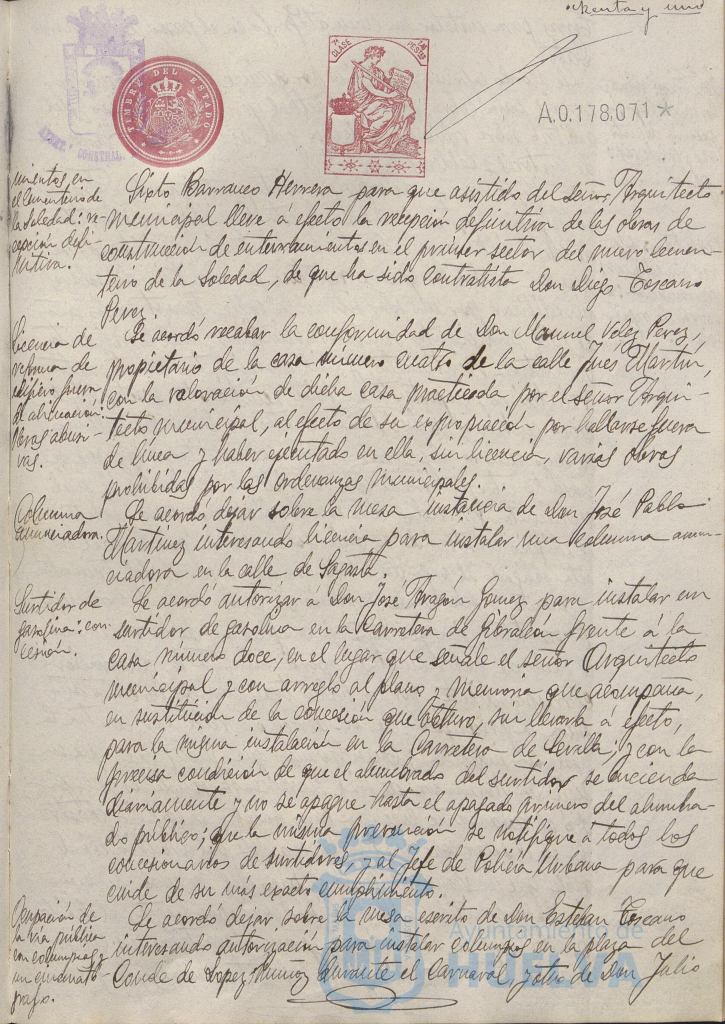 ochenta y uno
TIMBRE DEL ESTADO
7ª CLASE
PESETAS
A.0.178.071 *
mientos en
el cementerio de
la Soledad: re-
cepción defi-
nitiva.
Sixto Barranco Herrera para que asistido del señor Arquitecto
municipal lleve á efecto la recepción definitiva de las obras de
construcción de enterramientos en el primer sector del nuevo Cemen-
terio de la Soledad, de que ha sido contratista Don Diego Toscano
Perez.
Licencia de
reforma de
edificio fuera
de alineación:
Obras abusi-
vas.
Se acordó recabar la conformidad de Don Manuel Vélez Perez,
propietario de la casa número cuatro de la calle Ynés Martín,
con la valoración de dicha casa practicada por el señor Arqui-
tecto municipal, al efecto de su expropiación por hallarse fuera
de línea y haber ejecutado en ella, sin licencia, varias obras
prohibidas por las ordenanzas municipales.
Columna
anunciadora.
Se acordó dejar sobre la mesa instancia de Don José Pablo
Martínez interesando licencia para instalar una columna anun-
ciadora en la calle de Sagasta.
Surtidor de
gasolina: con-
cesión.
Se acordó autorizar á Don José Aragón Gómez para instalar un
surtidor de gasolina en la Carretera de Gibraleón frente á la
casa número doce, en el lugar que señale el señor Arquitecto
municipal y con arreglo al plano y memoria que acompaña,
en sustitución de la concesión que obtuvo, sin llevarla á efecto,
para la misma instalación en la Carretera de Sevilla; y con la
precisa condición de que el alumbrado del surtidor se encienda
diariamente y no se apague hasta el apagado primero del alumbra-
do público; que la misma prevención se notifique á todos los
concesionarios de surtidores, y al Jefe de Policía Urbana para que
cuide de su más exacto cumplimiento.
Ocupación de
la vía pública
con columpios y
un
Se acordó dejar sobre la mesa escrito de Don Esteban Toscano
interesando autorización para instalar columpios en la plaza del
Conde de López Muñoz durante el Carnaval, y otro de Don Julio
Ayuntamiento de
HUELVA